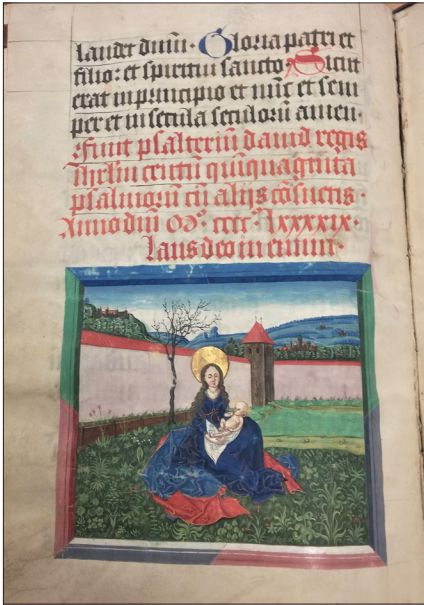 laudet dnm̄. Gloria patri et
filio: et spiritui sancto. Sicut
erat in principio et nūc et sem
per et in secula seculorū amen.
Finit psalteriū dauid regis
centū quīquaginta
psalmorum cū alijs cōsuetis.
Anno dnī Mº. cccc. lxxxxix.
Laus deo in